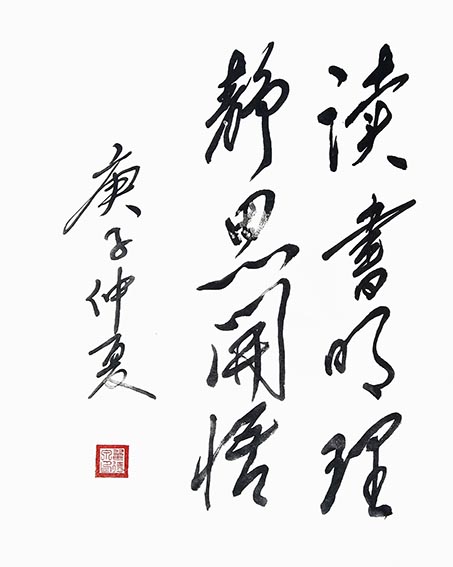 读書明理
静思開悟
庚子仲夏